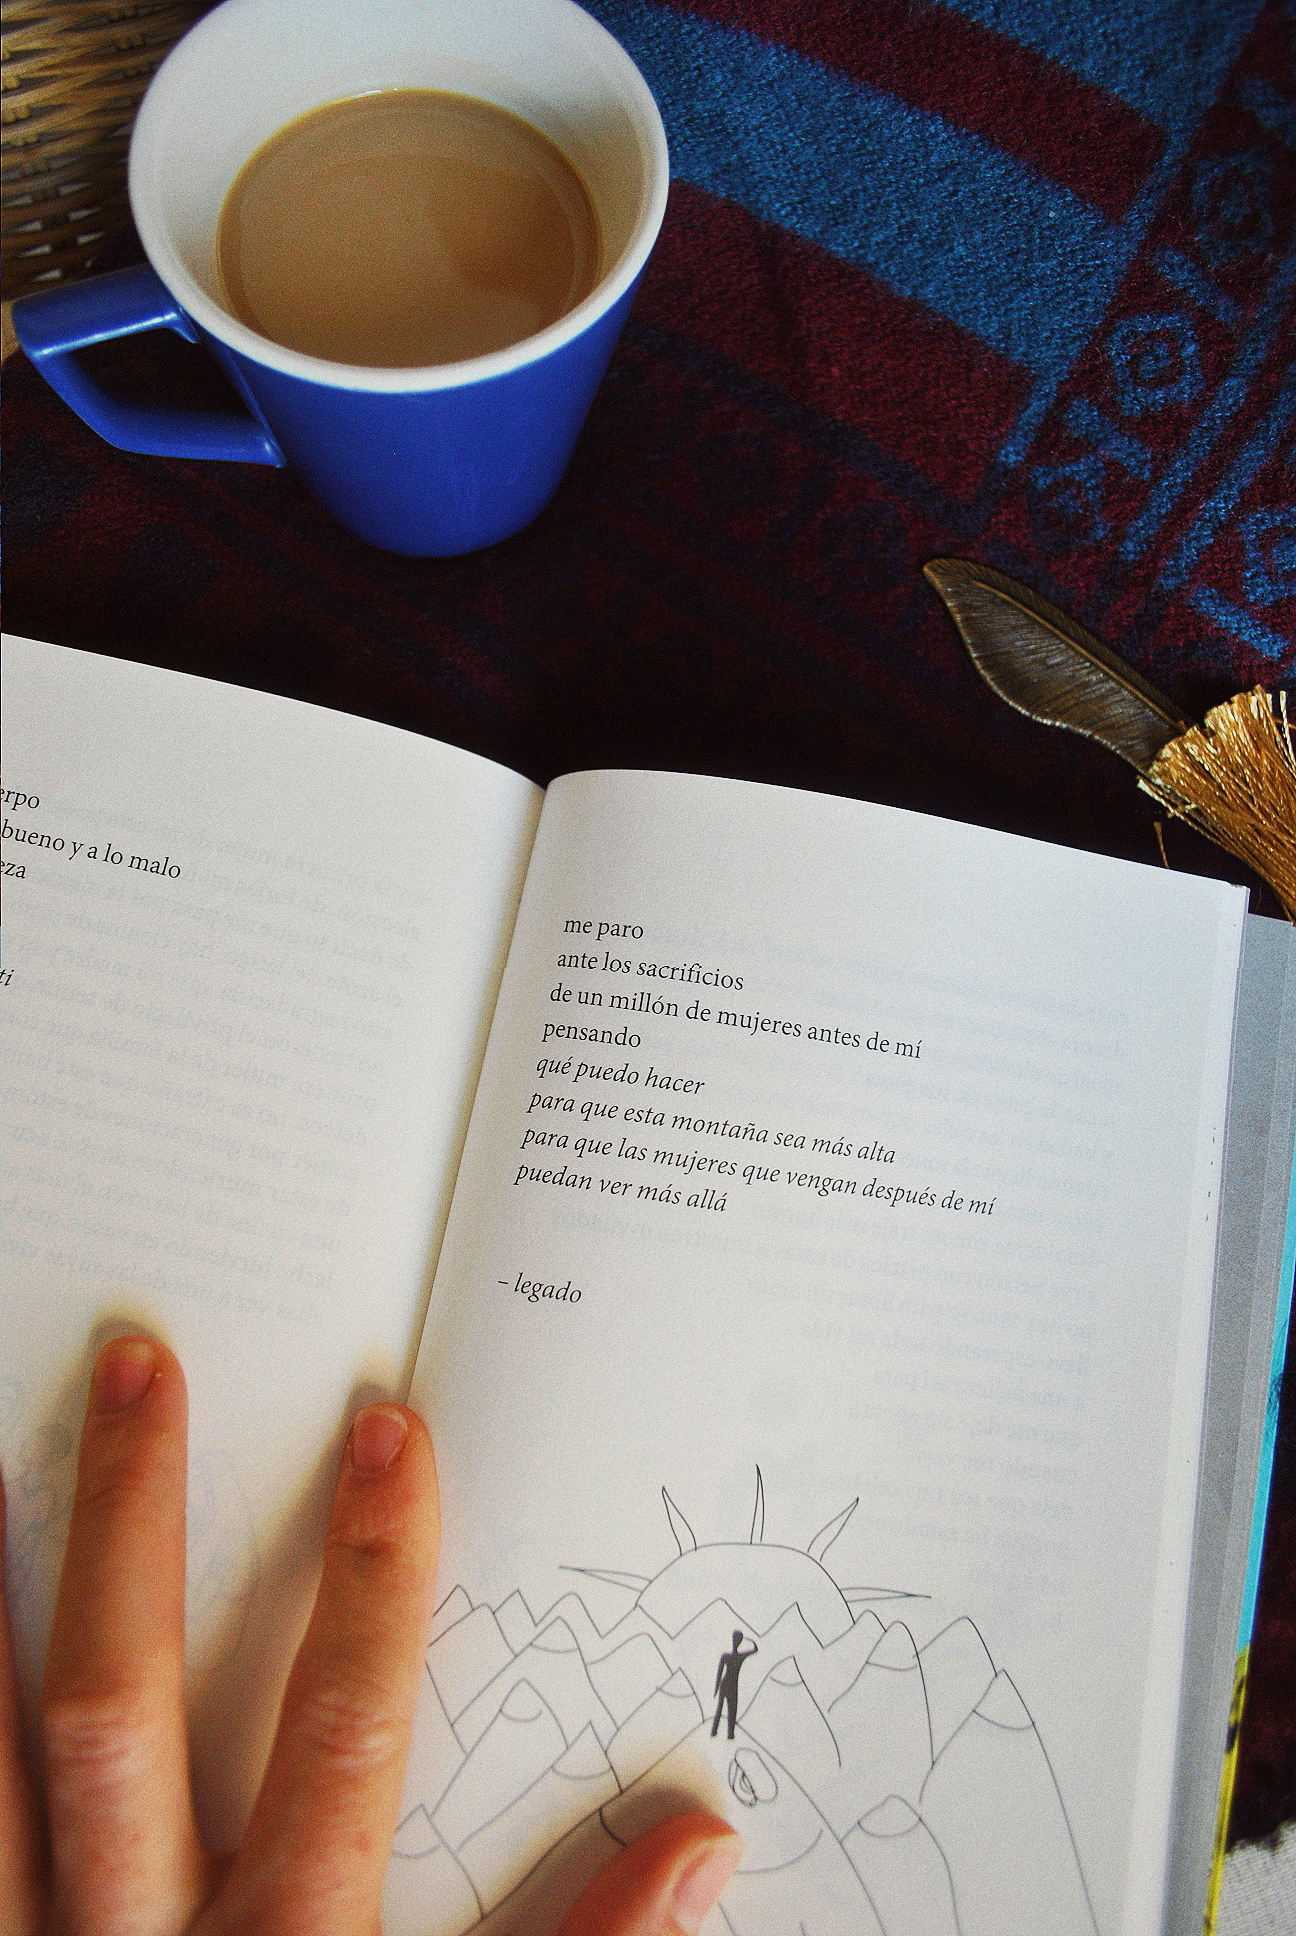 bueno y a lo malo
me paro
ante los sacrificios
de un millón de mujeres antes de mí
pensando
qué puedo hacer
para que esta montaña sea más alta
para que las mujeres que vengan después de mí
puedan ver más allá
– legado